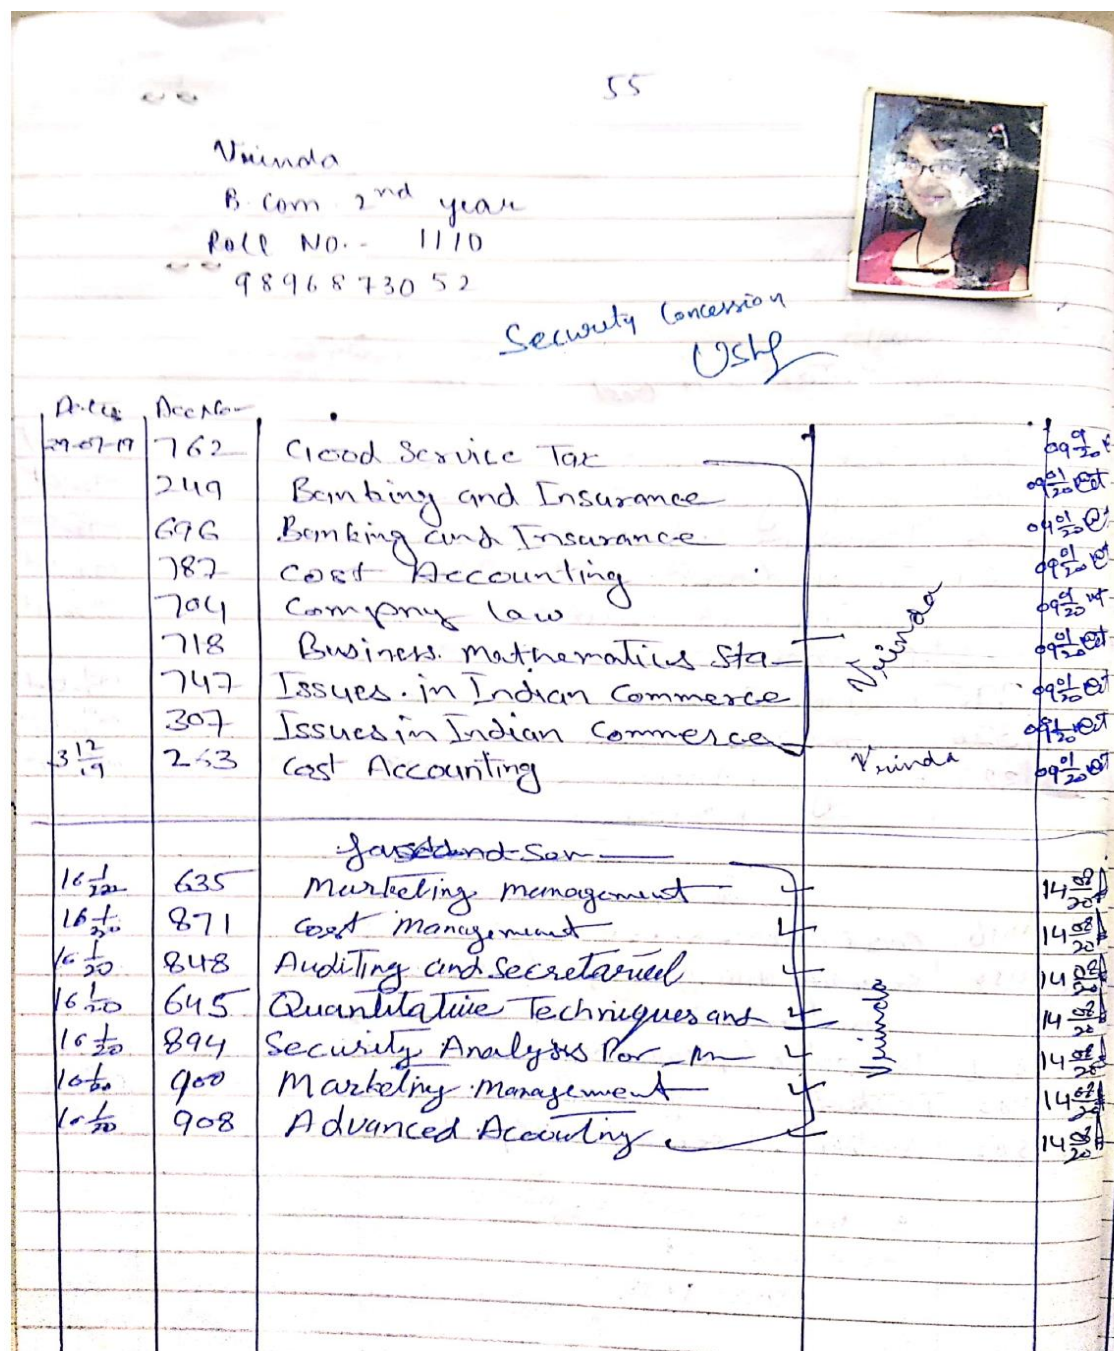 55
Vrinda
B. Com 2nd year
Roll No. - 1110
9896873052
Security Concession
Dates Acc No-
29-07-19 762 Good Service Tax
249 Banking and Insurance 09 01/20
696 Banking and Insurance 09 01/20
787 Cost Accounting 09 01/20
704 Company law
718 Business Mathematics Sta- 09 01/20
747 Issues in Indian Commerce 09 01/20
307 Issues in Indian Commerce
Vrinda
3 12/19 Cost Accounting Vrinda 09 01/20
635 Marketing management 14 08/20
16 1/20 871 Cost Management 14 08/20
16 1/20 848 Auditing and Secretarial 14 08/20
16 1/20 645 Quantitative Techniques and 14 08/20
16 1/20 894 Security Analysis Por_m 14 08/20
16 1/20 900 Marketing Management 14 08/20
16 1/20 908 Advanced Accounting 14 08/20
Vrinda